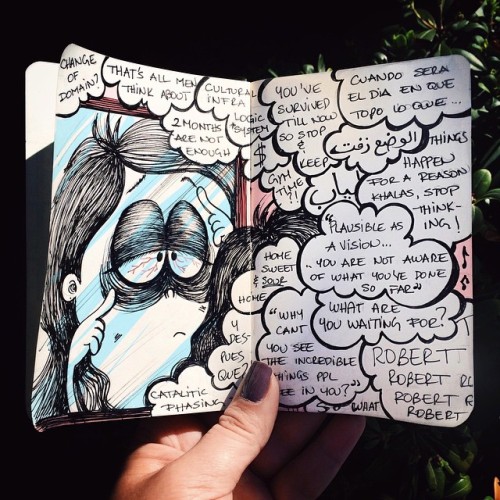 CHANGE
OF
DOMAIN?
THAT'S ALL MEN
THINK ABOUT
CULTURAL
INFRA
LOGIC
SYSTEM
2 MONTHS
ARE NOT
ENOUGH
$
YOU'VE
SURVIVED
TILL NOW
SO STOP
&
KEEP
GYM
TIME
?!!
CUANDO SERA
EL DIA EN QUE
TOPO LO QUE...
الوضع زفت
THINGS
HAPPEN
FOR A REASON
KHALAS, STOP
THINK-
ING!
"PLAUSIBLE AS
A VISION...
..YOU ARE NOT AWARE
OF WHAT YOU'VE DONE
SO FAR"
HOME
SWEET
& SOUR
HOME
WHAT ARE
YOU WAITING FOR?
"WHY
CANT
YOU SEE
THE INCREDIBLE
THINGS PPL
SEE IN YOU?"
Y
DES-
PUES
QUE?
CATALITIC
PHASING
WHAT
ROBERT
ROBERT
ROBERT
ROBERT